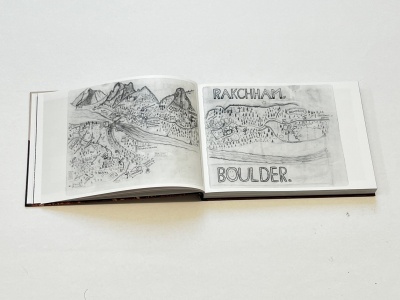 RAKCHHAM.
BOULDER.